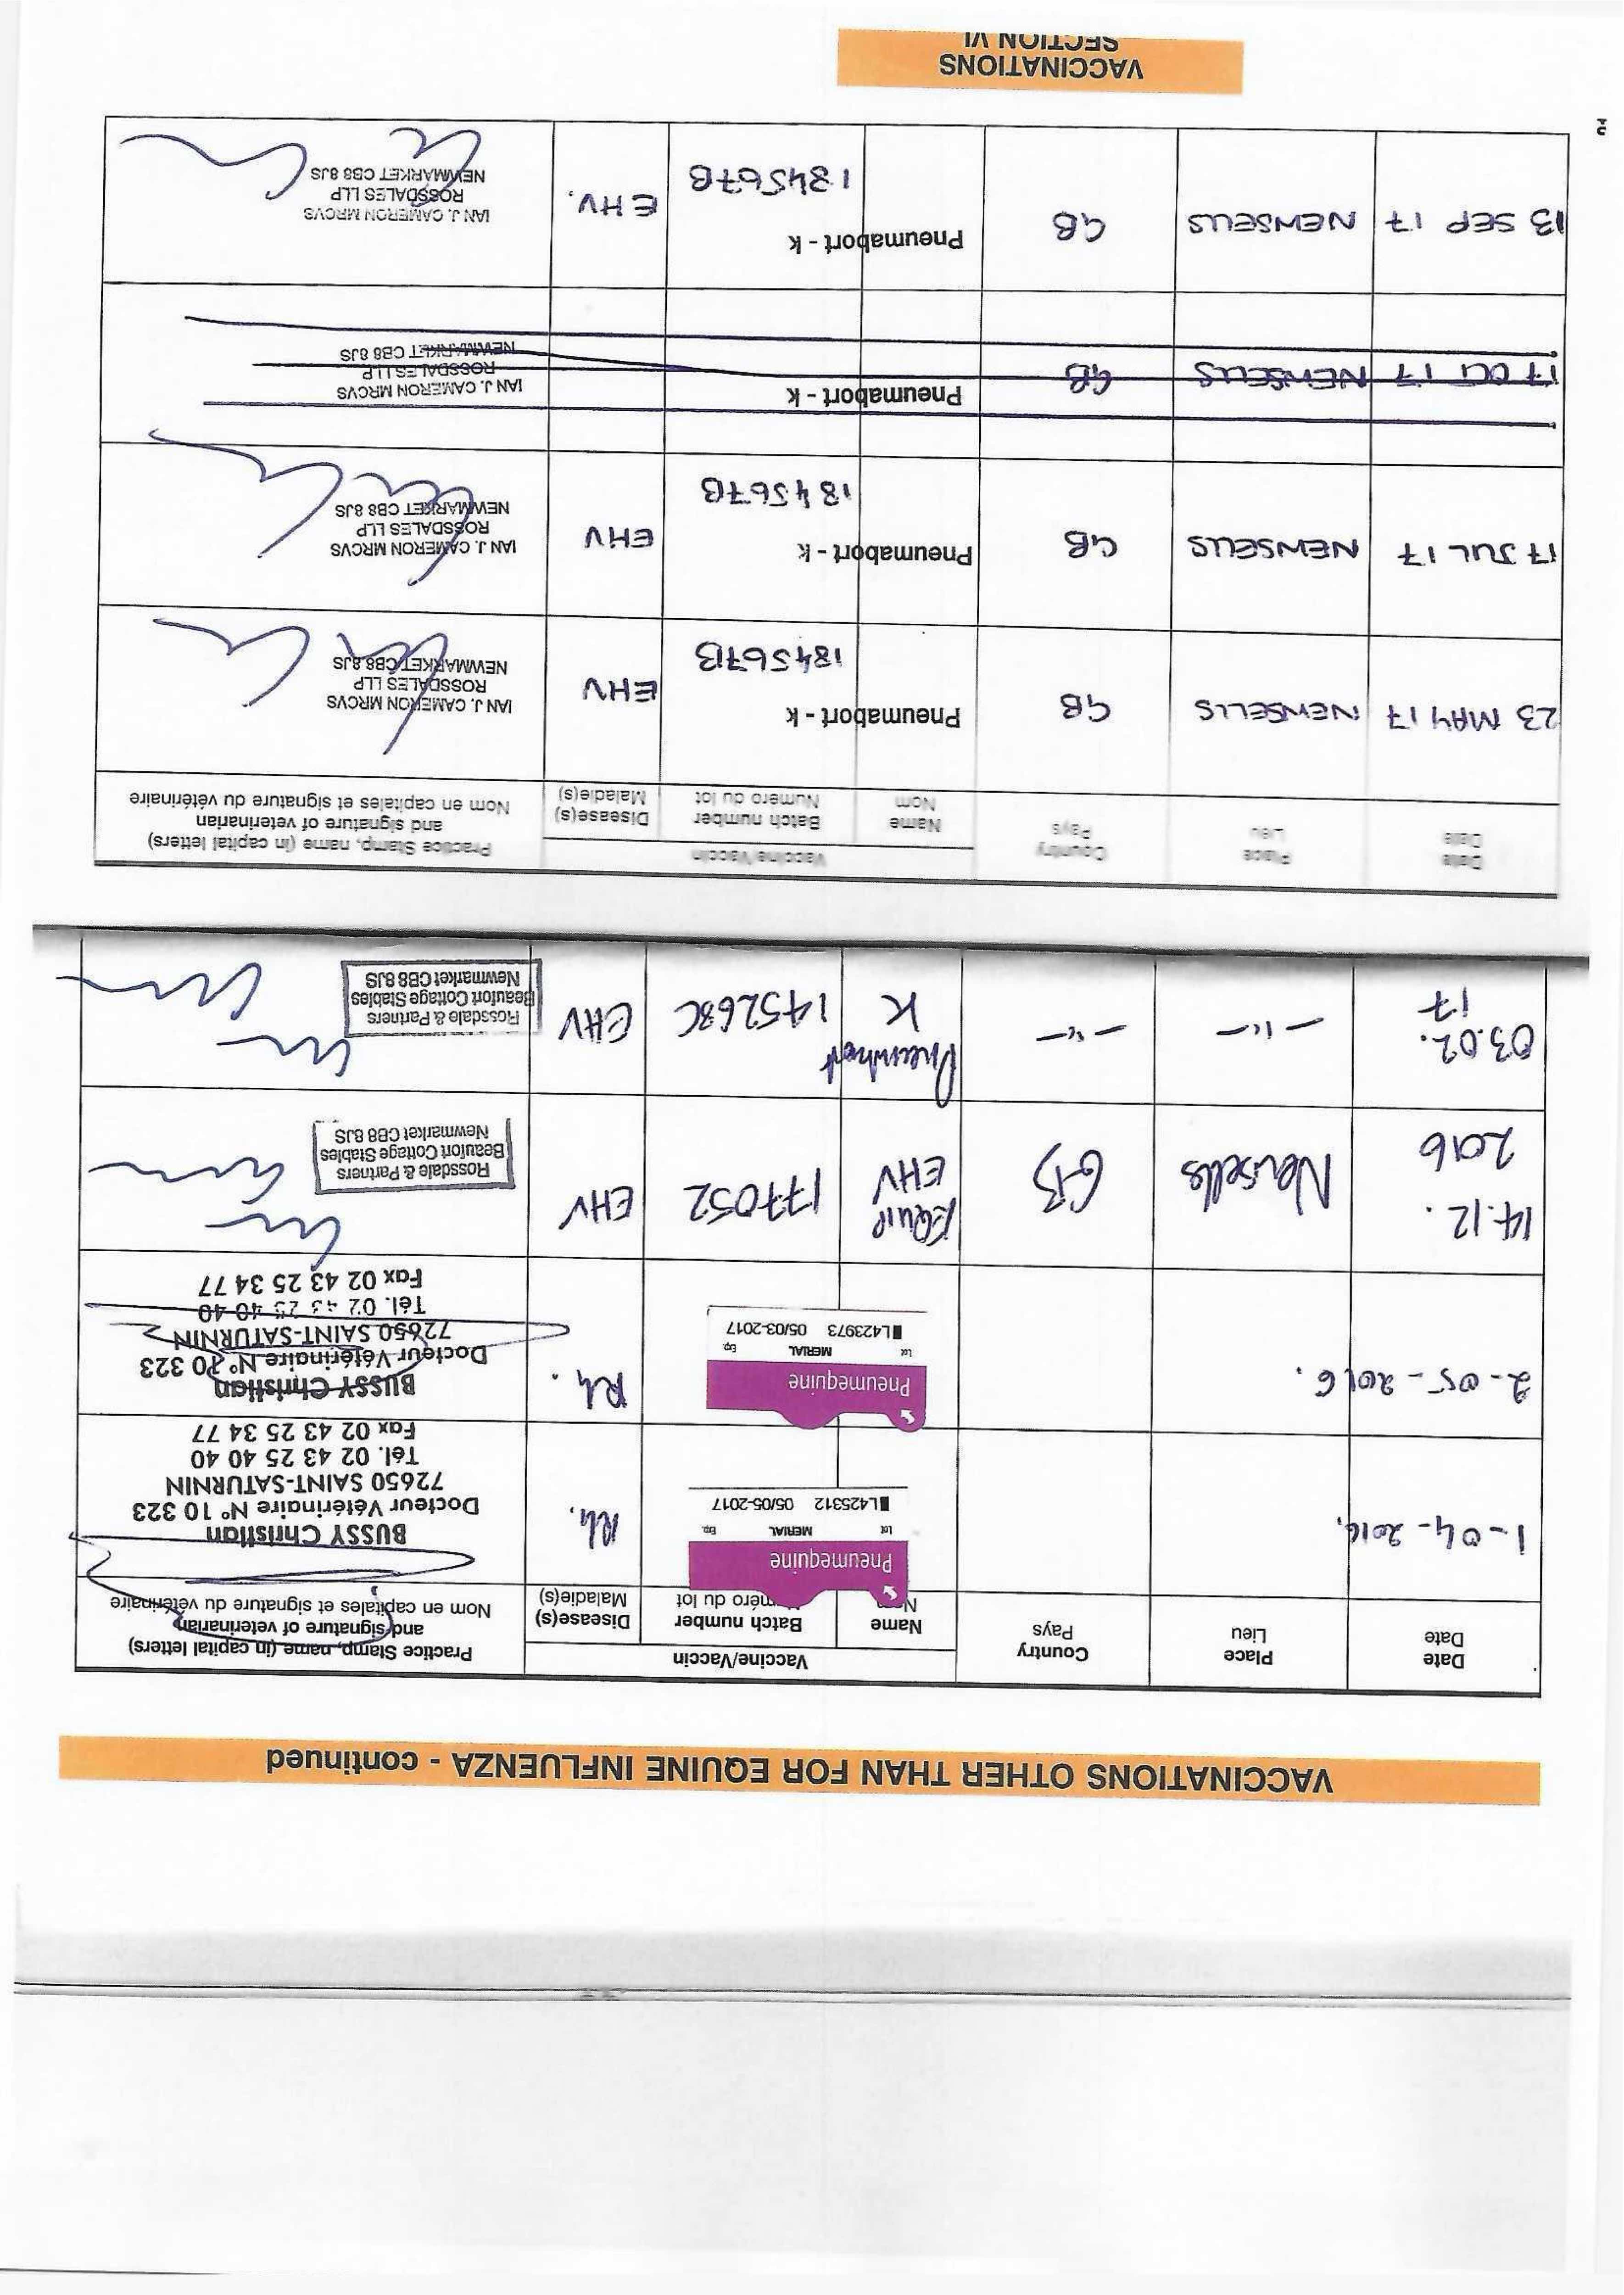 VACCINATIONS OTHER THAN FOR EQUINE INFLUENZA - continued
Date
Date
Place
Lieu
Country
Pays
Vaccine/Vaccin
Name
Batch number
méro du lot
Disease(s)
Maladie(s)
Practice Stamp, name (in capital letters)
and signature of veterinarian
Nom en capitales et signature du vétérinaire
1-04-2016.
Pneumequine
Lot MERIAL Exp.
L425312 05/05-2017
Rh.
BUSSY Christian
Docteur Vétérinaire N° 10 323
72650 SAINT-SATURNIN
Tél. 02 43 25 40 40
Fax 02 43 25 34 77
2-05-2016.
Pneumequine
Lot MERIAL Exp.
L423973 05/03-2017
Rh.
BUSSY Christian
Docteur Vétérinaire N° 323
72650 SAINT-SATURNIN
Tél. 02 43 25 40 40
Fax 02 43 25 34 77
14.12.
2016
Newsells
GB
EQUIP
EHV
177052
EHV
Rossdale & Partners
Beaufort Cottage Stables
Newmarket CB8 8JS
03.02.
17
-"-
-"-
K
145268C
EHV
Rossdale & Partners
Beaufort Cottage Stables
Newmarket CB8 8JS
Date
Date
Place
Lieu
Country
Pays
Vaccine/Vaccin
Name
Nom
Batch number
Numéro du lot
Disease(s)
Maladie(s)
Practice Stamp, name (in capital letters)
and signature of veterinarian
Nom en capitales et signature du vétérinaire
23 MAY 17
NEWSELLS
GB
Pneumabort - k
184567B
EHV
IAN J. CAMERON MRCVS
ROSSDALES LLP
NEWMARKET CB8 8JS
17 JUL 17
NEWSELLS
GB
Pneumabort - k
184567B
EHV
IAN J. CAMERON MRCVS
ROSSDALES LLP
NEWMARKET CB8 8JS
17 OCT 17
NEWSELLS
GB
Pneumabort - k
IAN J. CAMERON MRCVS
ROSSDALES LLP
NEWMARKET CB8 8JS
13 SEP 17
NEWSELLS
GB
Pneumabort - k
184567B
EHV.
IAN J. CAMERON MRCVS
ROSSDALES LLP
NEWMARKET CB8 8JS
VACCINATIONS
SECTION VI